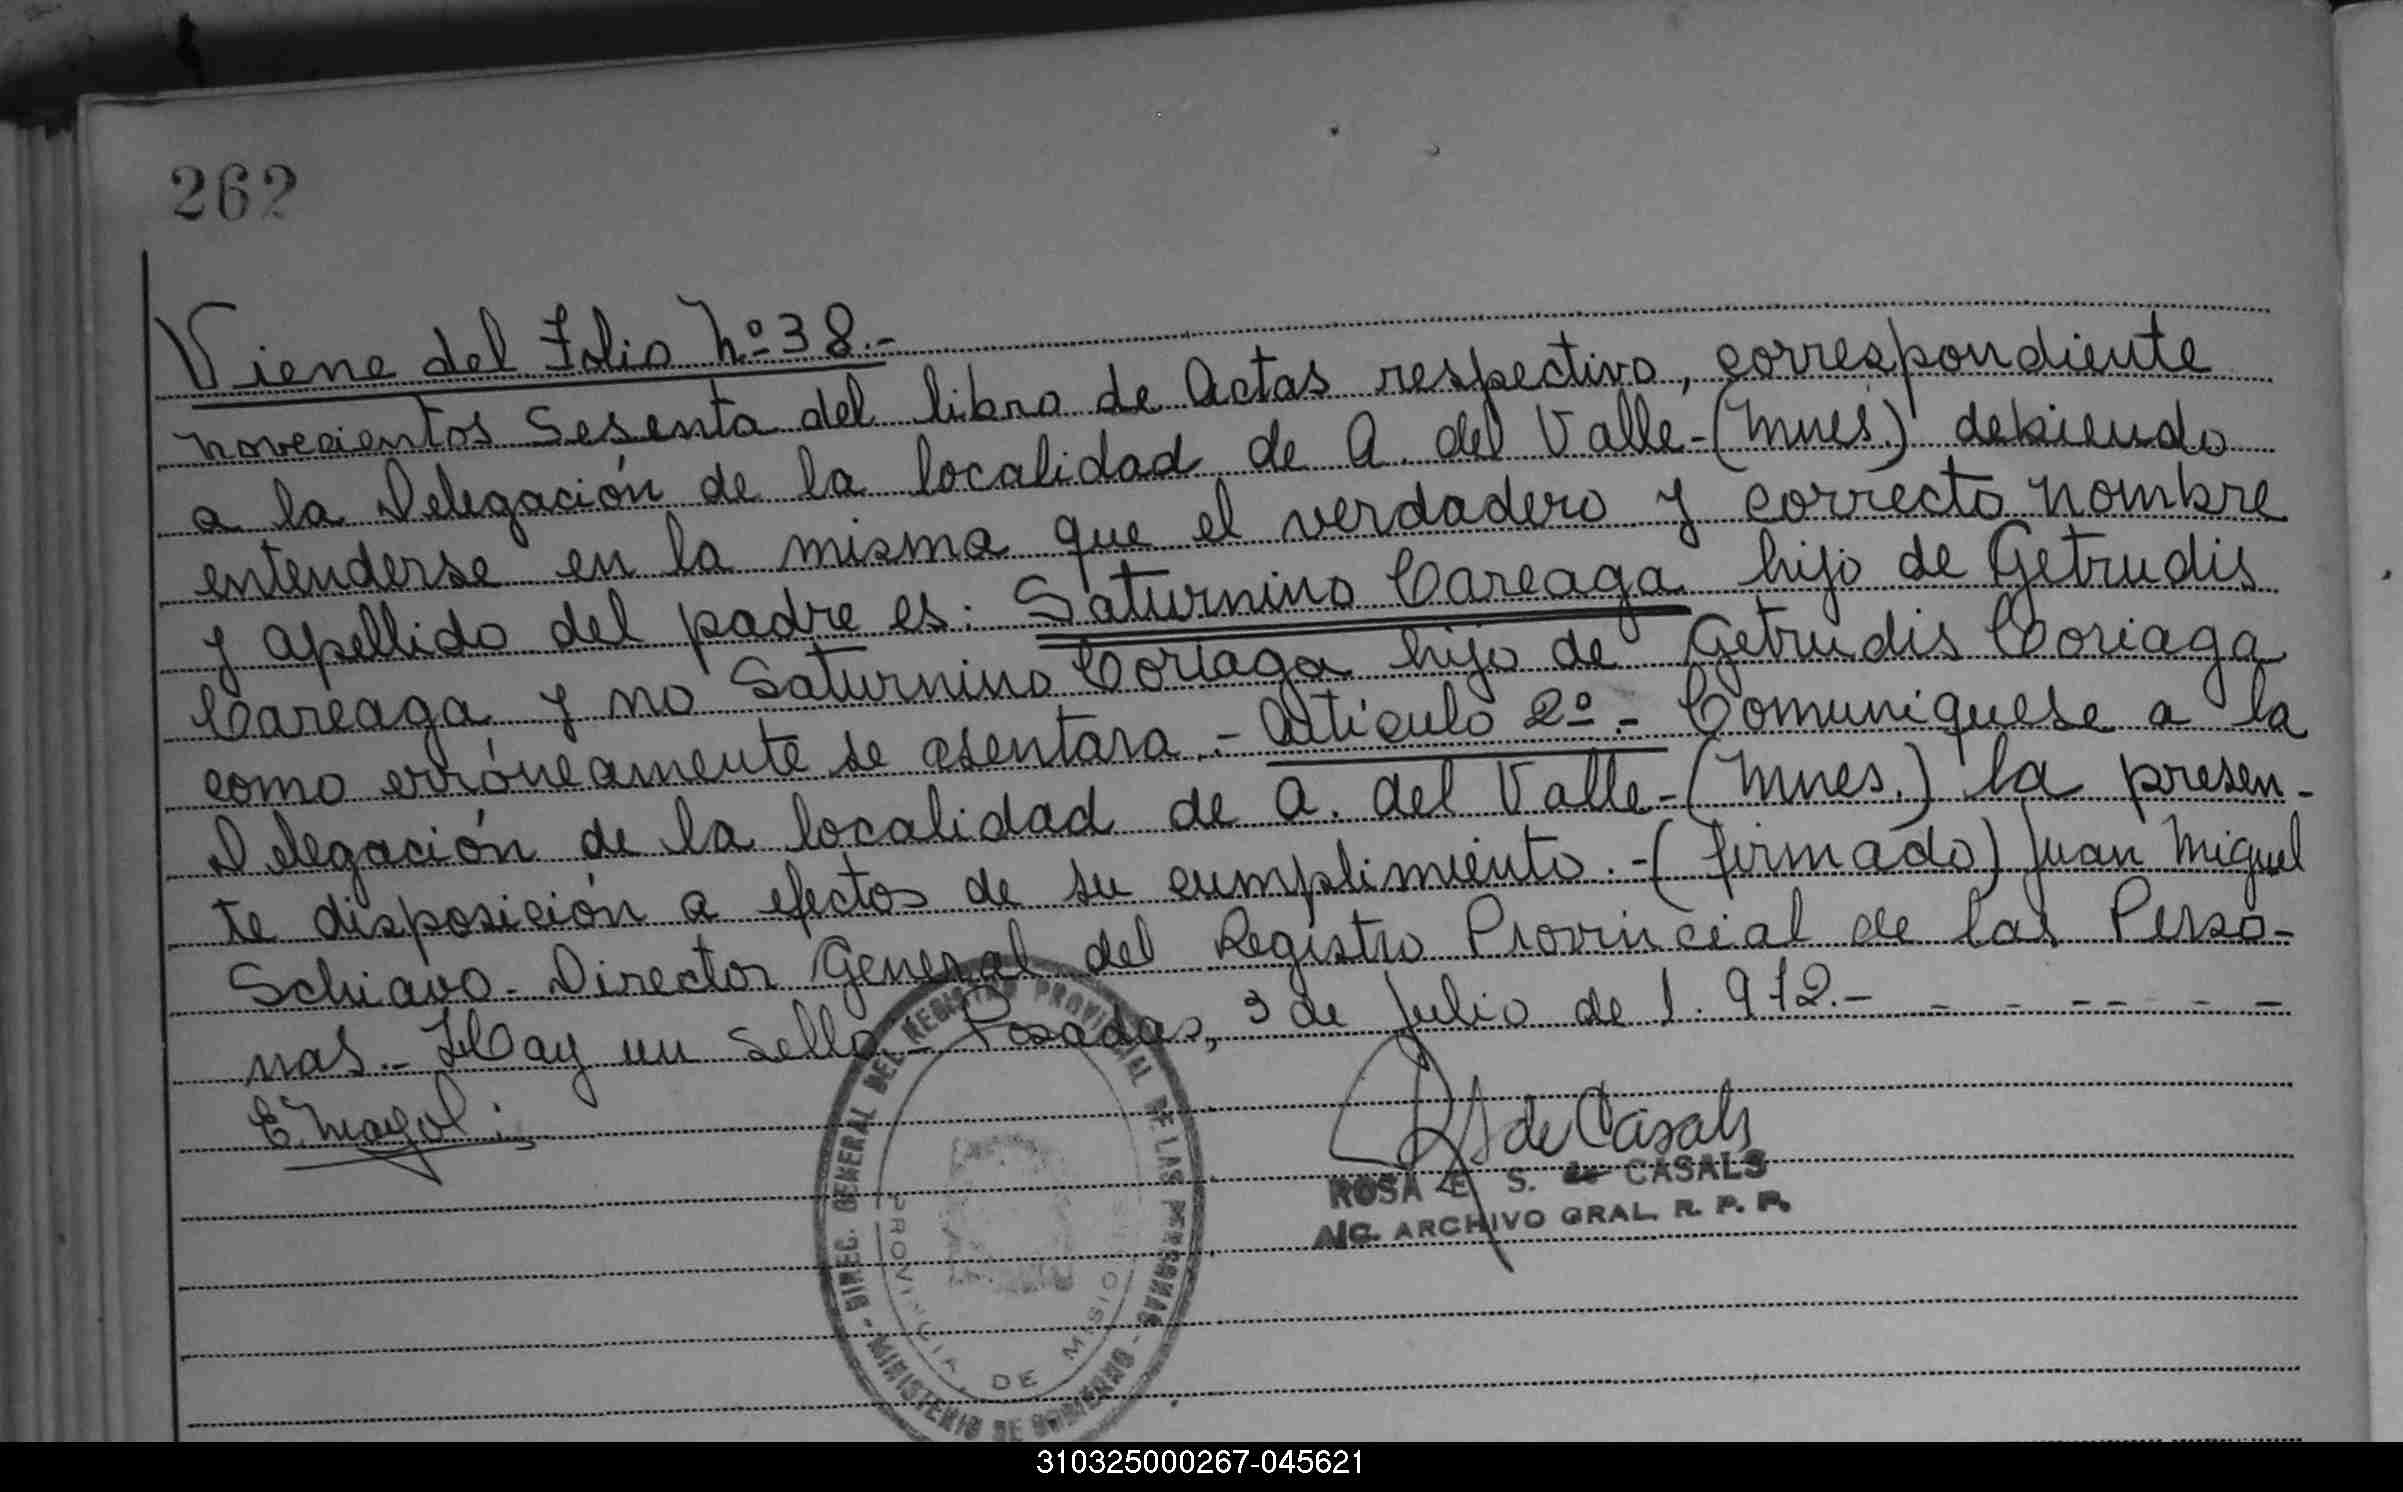 262
Viene del Folio Nº 38.-
novecientos sesenta del libro de Actas respectivo, correspondiente
a la Delegación de la localidad de A. del Valle-(Mnes.) debiendo
entenderse en la misma que el verdadero y correcto nombre
y apellido del padre es: Saturnino Careaga hijo de Getrudis
Careaga y no Saturnino Coriaga hijo de Getrudis Coriaga
como erróneamente se asentara.- Artículo 2º.- Comuníquese a la
Delegación de la localidad de A. del Valle-(Mnes.) la presen-
te disposición a efectos de su cumplimiento.-(firmado) Juan Miguel
Schiavo- Director General del Registro Provincial de las Perso-
nas.- Hay un sello- Posadas, 3 de Julio de 1.972.- - - - - - -
E. Mayol
RS de Casals
ROSA E. S. de CASALS
A/C. ARCHIVO GRAL. R. P. P.
DIREC. GENERAL DEL REGISTRO PROVINCIAL DE LAS PERSONAS
- MINISTERIO DE GOBIERNO -
PROVINCIA DE MISIO
310325000267-045621